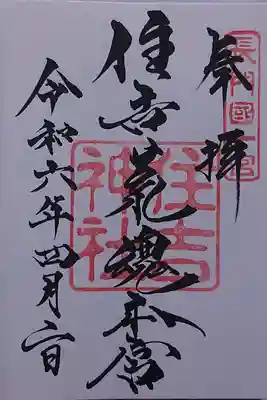 奉拝
長門國一宮
住吉荒魂本宮
住吉神社
令和六年四月二日